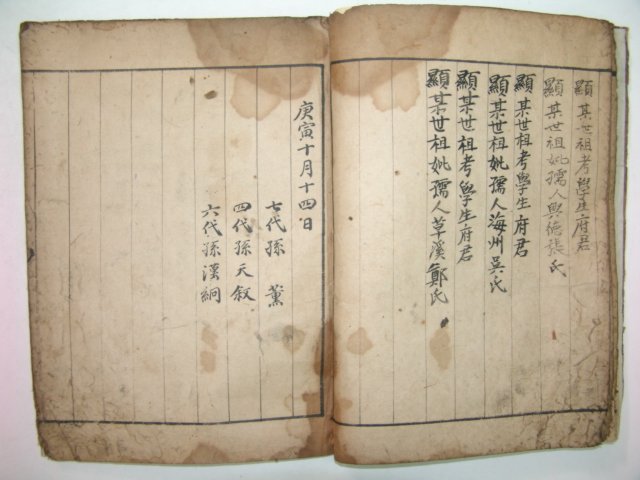 顯某世祖考學生府君
顯某世祖妣孺人興德張氏
顯某世祖考學生府君
顯某世祖妣孺人海州吳氏
顯某世祖考學生府君
顯某世祖妣孺人草溪鄭氏
庚寅十月十四日
七代孫 薰
四代孫天叙
六代孫漢絅